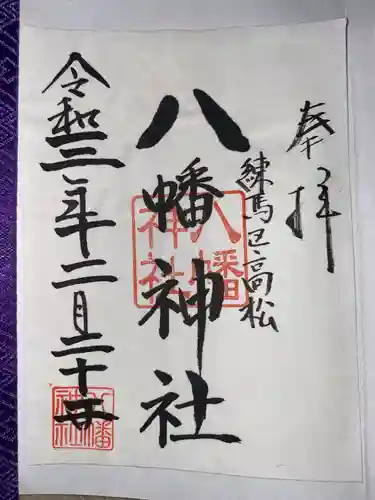 奉拝
練馬区高松
八幡神社
八幡神社
令和三年二月二十一日
八幡神社